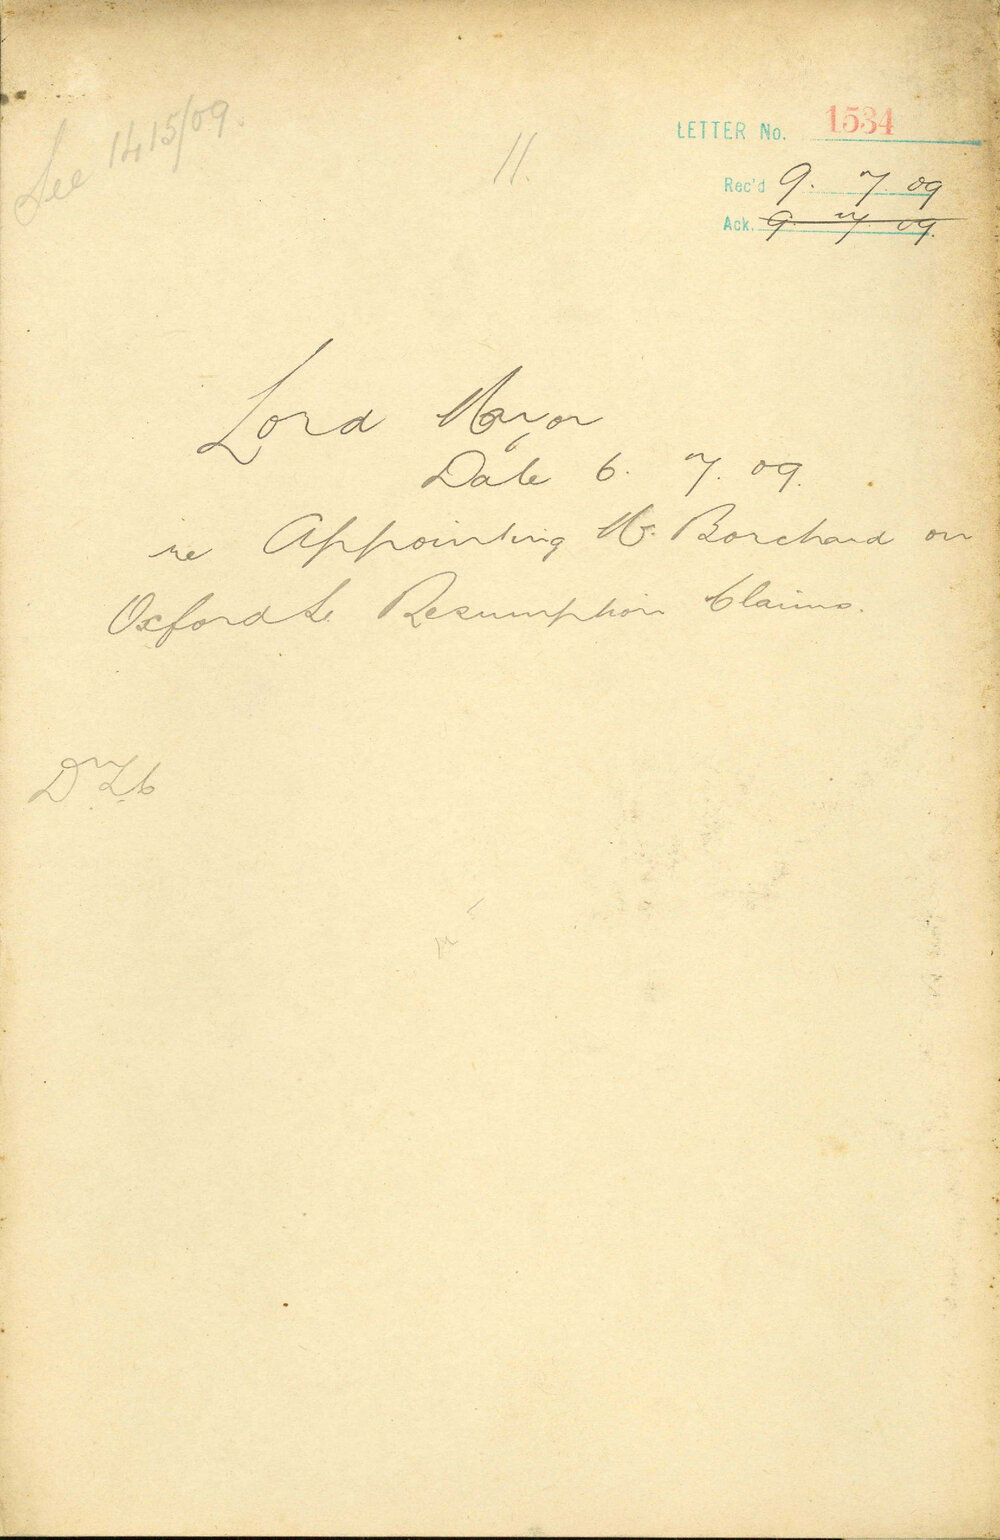 See 1415/09.
11.
LETTER No. 1534
Rec'd 9. 7. 09
Ack. 9. 7. 09.
Lord Mayor
Date 6. 7. 09.
re Appointing Mr. Borchard on
Oxford St. Resumption Claims.